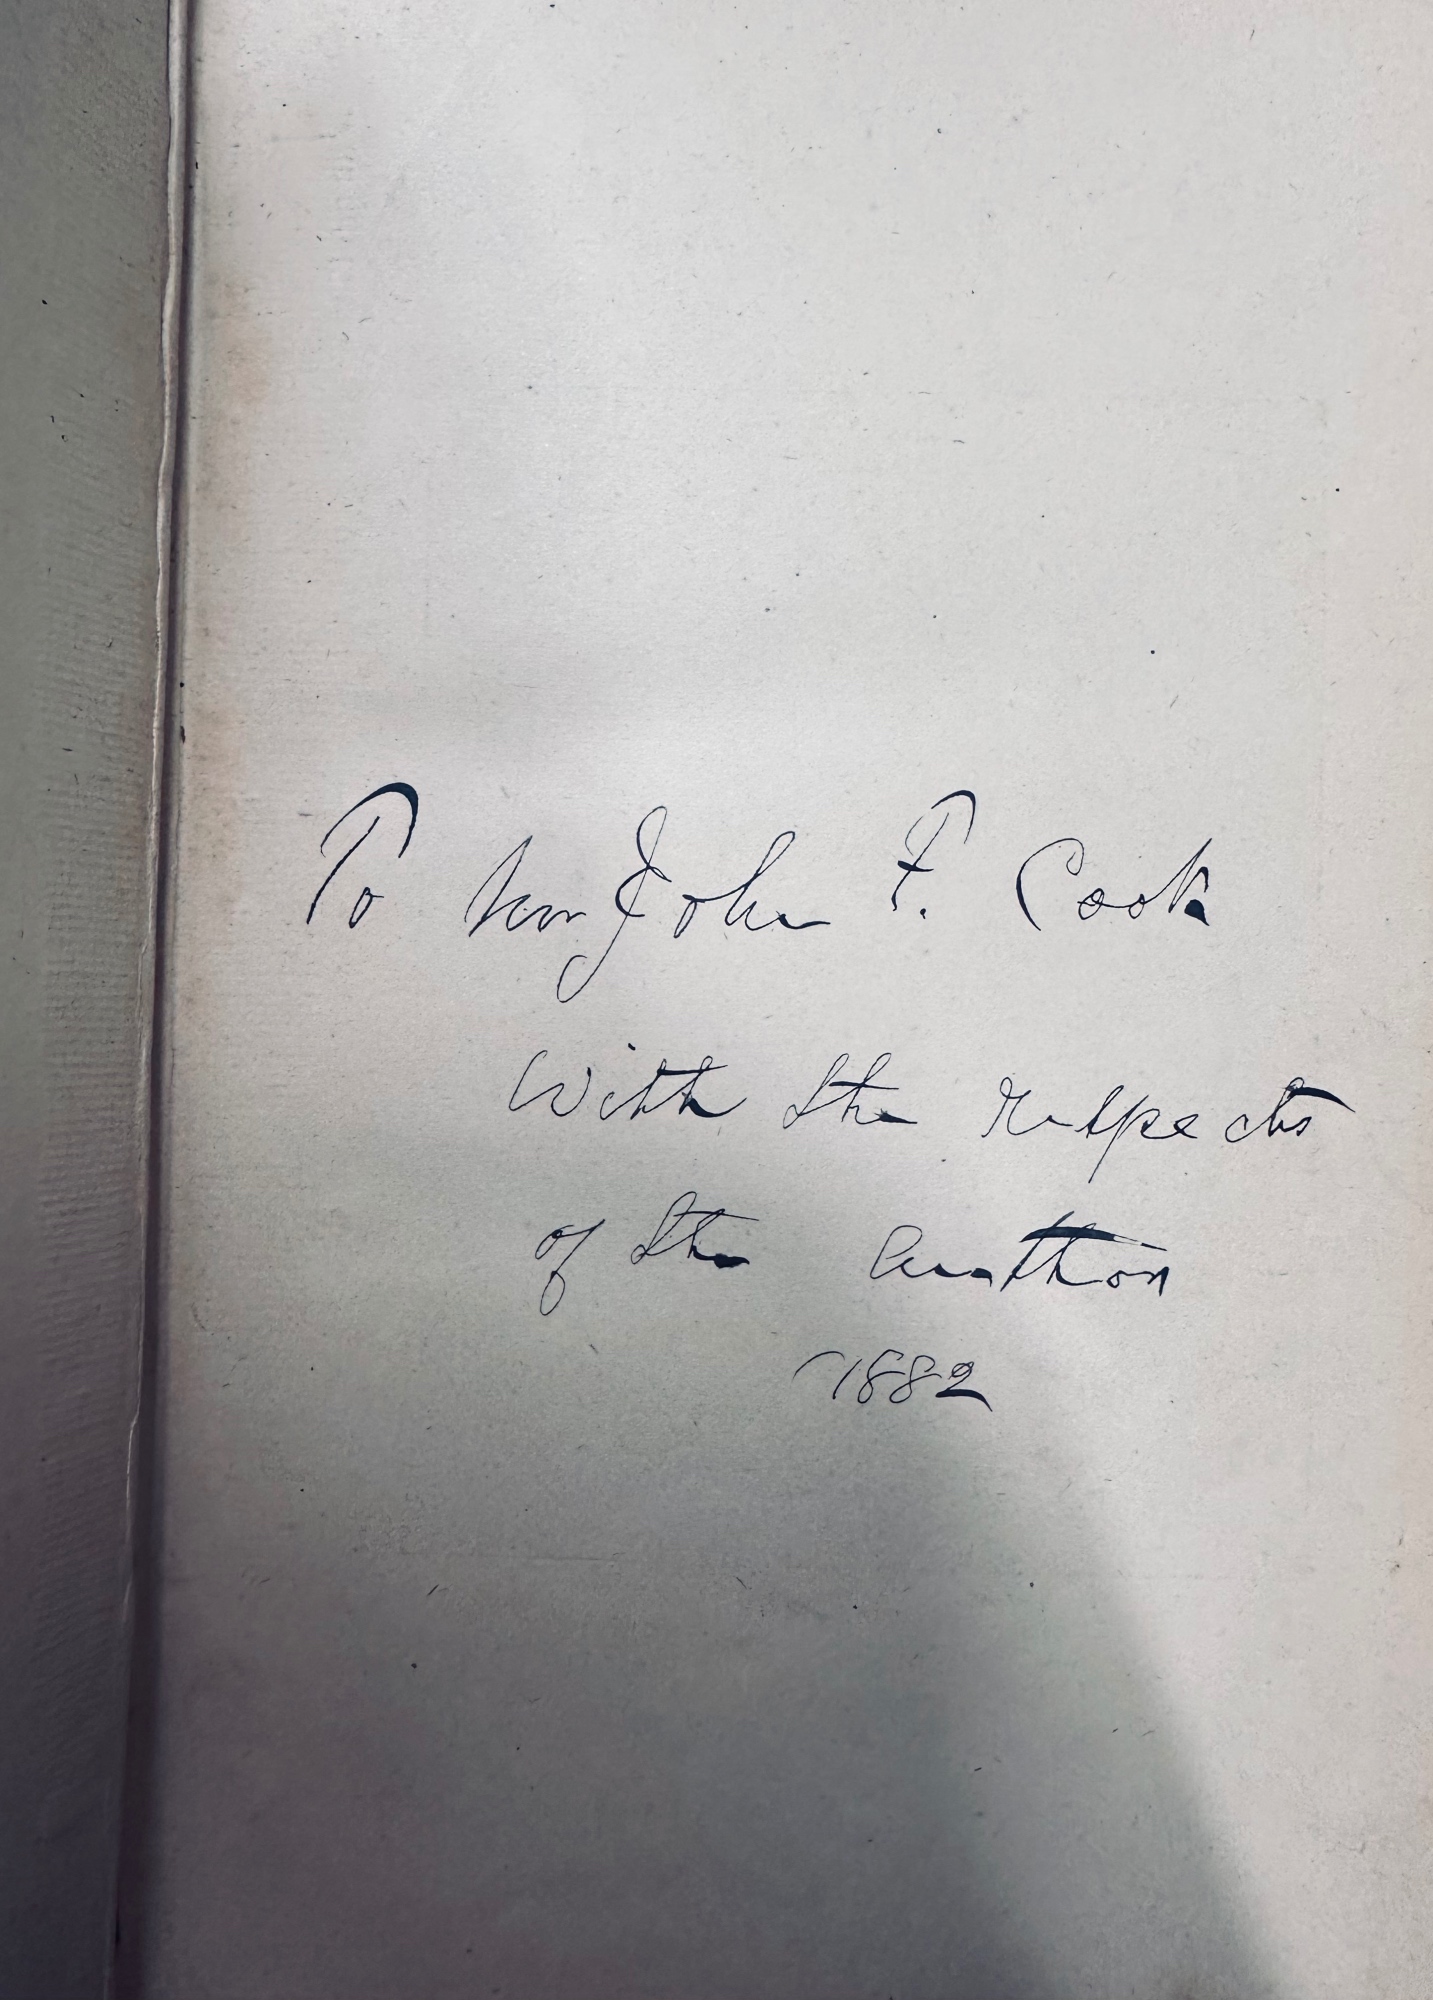 To Hon John F. Cook
With the respects
of the author
1882